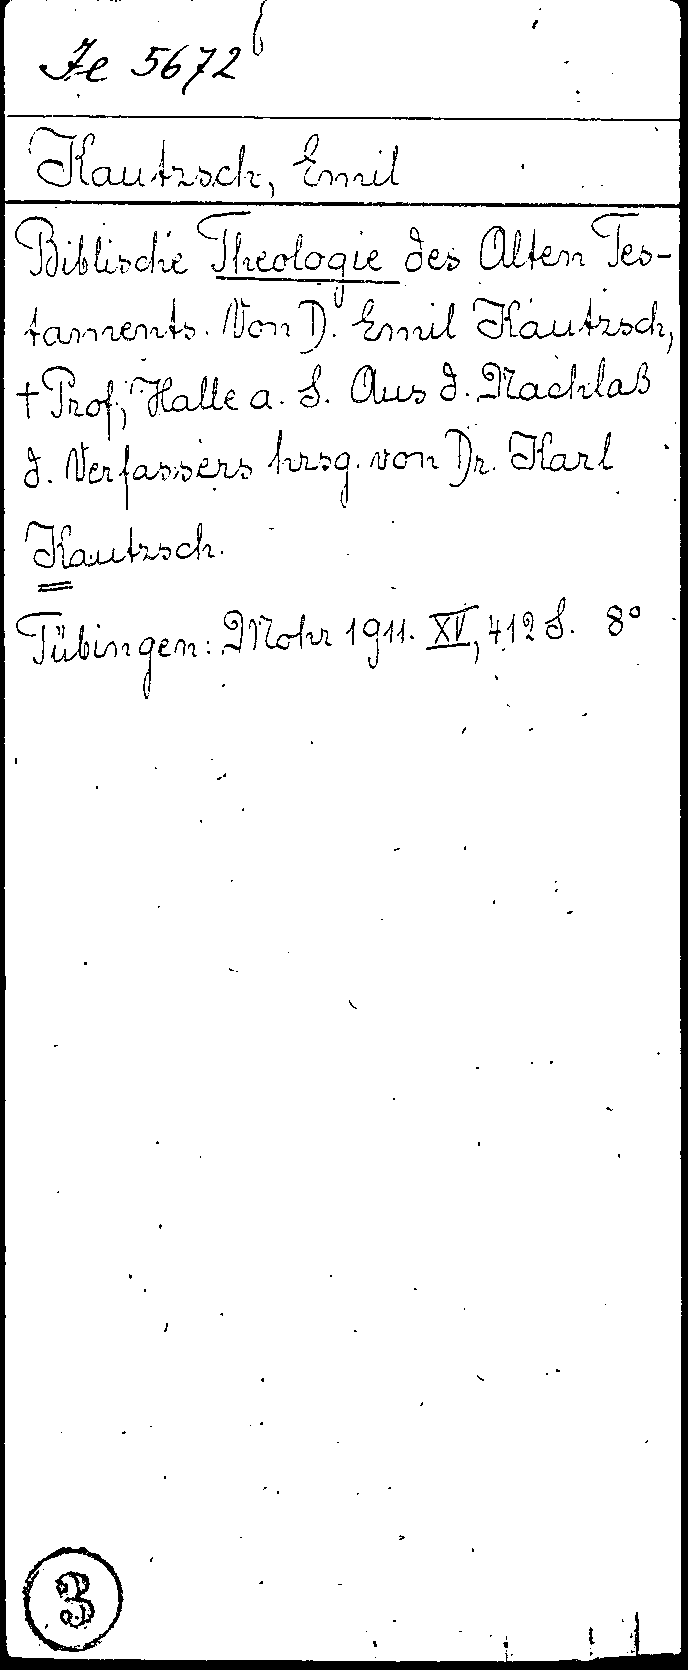 Je 5672
Kautzsch, Emil
Biblische Theologie des Alten Tes-
taments. Von D. Emil Kautzsch,
† Prof; Halle a. S. Aus d. Nachlaß
d. Verfassers hrsg. von Dr. Karl
Kautzsch.
Tübingen: Mohr 1911. XV, 412 S. 8°
3